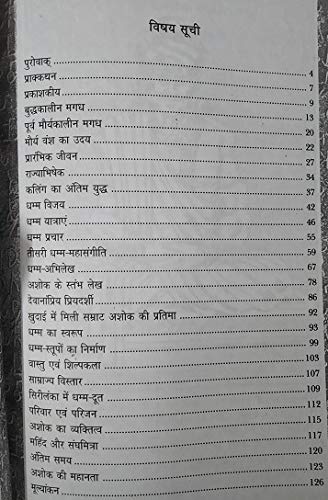 विषय सूची
पुरोवाक् ........ 4
प्राक्कथन ........ 7
प्रकाशकीय ........ 9
बुद्धकालीन मगध ........ 13
पूर्व मौर्यकालीन मगध ........ 20
मौर्य वंश का उदय ........ 22
प्रारंभिक जीवन ........ 27
राज्याभिषेक ........ 34
कलिंग का अंतिम युद्ध ........ 37
धम्म विजय ........ 42
धम्म यात्राएं ........ 46
धम्म प्रचार ........ 55
तीसरी धम्म-महासंगीति ........ 59
धम्म-अभिलेख ........ 67
अशोक के स्तंभ लेख ........ 78
देवानांप्रिय प्रियदर्शी ........ 86
खुदाई में मिली सम्राट अशोक की प्रतिमा ........ 92
धम्म का स्वरूप ........ 93
धम्म-स्तूपों का निर्माण ........ 99
वास्तु एवं शिल्पकला ........ 103
साम्राज्य विस्तार ........ 107
सिरीलंका में धम्म-दूत ........ 109
परिवार एवं परिजन ........ 112
अशोक का व्यक्तित्व ........ 115
महिंद और संघमित्रा ........ 117
अंतिम समय ........ 120
अशोक की महानता ........ 123
मूल्यांकन ........ 126